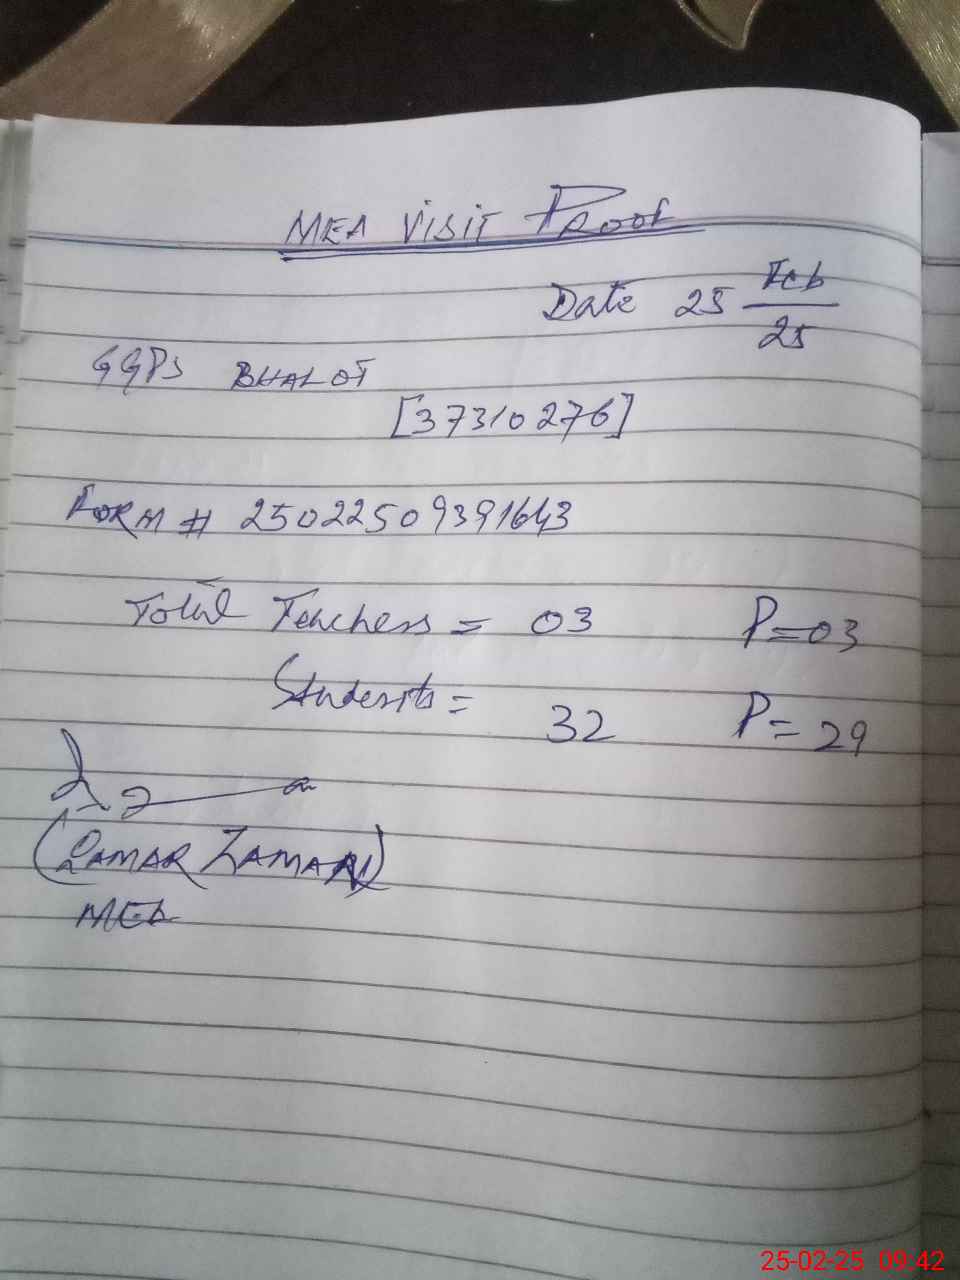 MEA VISIT PROOF
Date 25 Feb
25
GGPS BHALOT
[37310276]
FORM # 25022509391643
Total Teachers = 03 P=03
Students = 32 P=29
(QAMAR ZAMAN)
MEA
25-02-25 09:42